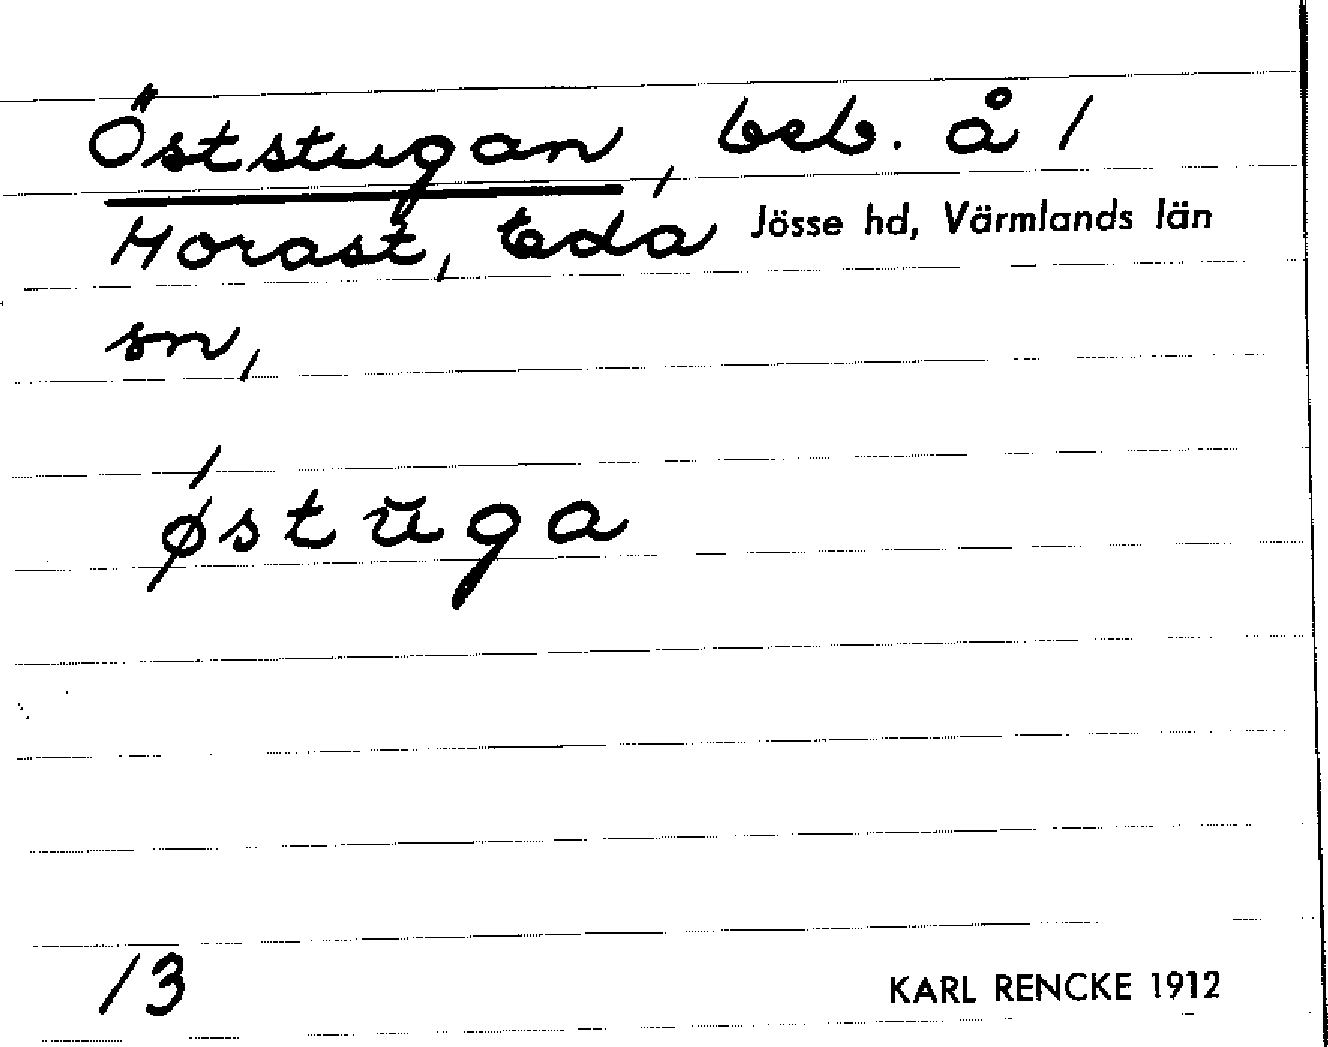 Öststugan, beb. å /
Morast, Eda Jösse hd, Värmlands län
sn,
/
østŭga
13 KARL RENCKE 1912